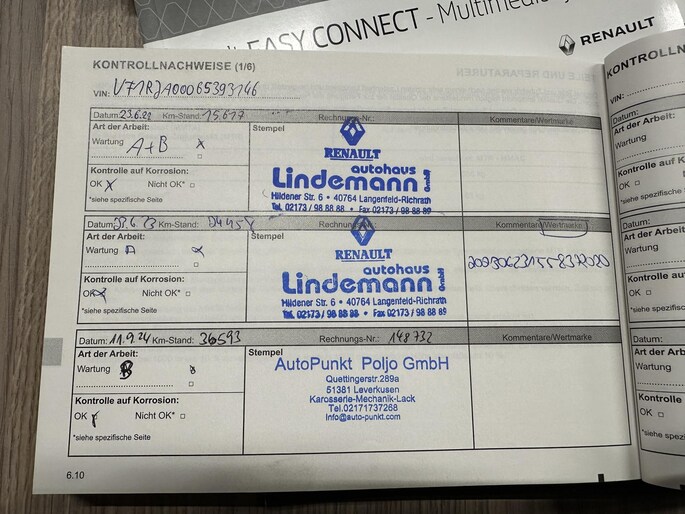 EASY CONNECT - Multimedia
RENAULT
KONTROLLNACHWEISE (1/6)
VIN: VF1RJA00065393146
Datum: 23.6.22 Km-Stand: 15617 Rechnungs-Nr.: Kommentare/Wertmarke
Art der Arbeit: Stempel
Wartung A+B x
Kontrolle auf Korrosion:
OK x Nicht OK* □
*siehe spezifische Seite
RENAULT
autohaus
Lindemann GmbH
Hildener Str. 6 • 40764 Langenfeld-Richrath
Tel. 02173 / 98 88 88 • Fax 02173 / 98 88 89
Datum: 6 23 Km-Stand: Kommentare/Wertmarke
Art der Arbeit: Stempel
Wartung A x
Kontrolle auf Korrosion:
OK x Nicht OK* □
*siehe spezifische Seite
RENAULT
autohaus
Lindemann GmbH
Hildener Str. 6 • 40764 Langenfeld-Richrath
Tel. 02173 / 98 88 88 • Fax 02173 / 98 88 89
Datum: 11.9.24 Km-Stand: 36593 Rechnungs-Nr.: 148732 Kommentare/Wertmarke
Art der Arbeit: Stempel
Wartung B x
Kontrolle auf Korrosion:
OK x Nicht OK* □
*siehe spezifische Seite
AutoPunkt Poljo GmbH
Quettingerstr.289a
51381 Leverkusen
Karosserie-Mechanik-Lack
Tel.02171737268
Info@auto-punkt.com
6.10
KONTROLLN
VIN:
Datum:
Art der Arbeit:
Wartung
Kontrolle auf
OK □
*siehe spezifische
Datum:
Art der Arbeit:
Wartung
Kontrolle auf
OK □
*siehe spezifische
Datum:
Art der Arbeit
Wartung
Kontrolle
OK □
*siehe spezi